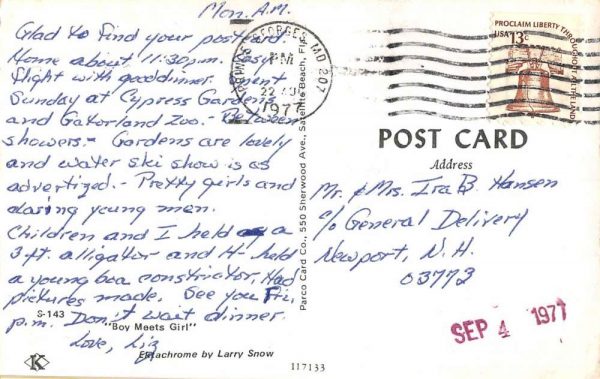 Mon. A.M.
Glad to find your postcard.
Home about 11:30 p.m. Easy
flight with good dinner. Spent
Sunday at Cypress Gardens
and Gatorland Zoo. - Between
showers. - Gardens are lovely
and water ski show is as
advertized. - Pretty girls and
daring young men.
Children and I held a
3 ft. alligator and H- held
a young boa constrictor. Had
pictures made. See you Fri.
p.m. Don't wait dinner.
Love, Liz
S-143
"Boy Meets Girl"
Ektachrome by Larry Snow
K
117133
Parco Card Co., 550 Sherwood Ave., Satellite Beach, Fla.
GEORGES, MD 207
PM
22 AUG
1977
PROCLAIM LIBERTY THROUGHOUT ALL THE LAND
USA 13c
POST CARD
Address
Mr. & Mrs. Ira B. Hansen
c/o General Delivery
Newport, N.H.
03773
SEP 4 1977